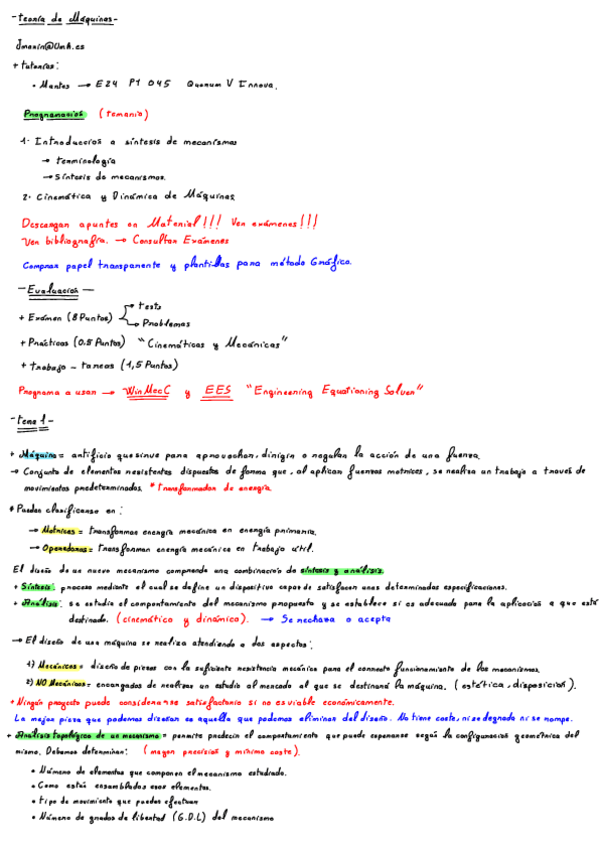 - Teoría de Máquinas -
Jmarin@Umh.es
+ tutorías:
• Martes → E24 P1 045 Quorum V Innova.
Programación (temario)
1. Introducción a síntesis de mecanismos
→ terminología
→ Síntesis de mecanismos.
2. Cinemática y Dinámica de Máquinas
Descargar apuntes en Material!!! Ver exámenes!!!
Ver bibliografía. → Consultar Exámenes
Comprar papel transparente y plantillas para método Gráfico.
- Evaluación -
+ Exámen (8 Puntos) → tests
→ Problemas
+ Prácticas (0.5 Puntos) "Cinemáticas y Mecánicas"
+ trabajo - tareas (1,5 Puntos)
Programa a usar → WinMecC y EES "Engineering Equationing Solver"
- Tema 1 -
+ Máquina = artificio que sirve para aprovechar, dirigir o regular la acción de una fuerza.
→ Conjunto de elementos resistentes dispuestos de forma que, al aplicar fuerzas motrices, se realiza un trabajo a través de
movimientos predeterminados. * Transformador de energía
* Pueden clasificarse en:
→ Motrices = transforman energía mecánica en energía primaria.
→ Operadoras = transforman energía mecánica en trabajo útil.
El diseño de un nuevo mecanismo comprende una combinación de síntesis y análisis.
+ Síntesis: proceso mediante el cual se define un dispositivo capaz de satisfacer unas determinadas especificaciones.
+ Análisis: se estudia el comportamiento del mecanismo propuesto y se establece si es adecuado para la aplicación a que está
destinado. (cinemático y dinámico). → Se rechaza o acepta
→ El diseño de una máquina se realiza atendiendo a dos aspectos:
1) Mecánicos = diseño de piezas con la suficiente resistencia mecánica para el correcto funcionamiento de los mecanismos.
2) NO Mecánicos = encargados de realizar un estudio al mercado al que se destinará la máquina. (estética, disposición).
+ Ningún proyecto puede considerarse satisfactorio si no es viable económicamente.
La mejor pieza que podemos diseñar es aquella que podemos eliminar del diseño. No tiene coste, ni se degrada ni se rompe.
+ Análisis topológico de un mecanismo = permite predecir el comportamiento que puede esperarse según la configuración geométrica del
mismo. Debemos determinar: (mayor precisión y mínimo coste).
• Número de elementos que componen el mecanismo estudiado.
• Como están ensamblados esos elementos.
• tipo de movimiento que pueden efectuar
• Número de grados de libertad (G.D.L) del mecanismo